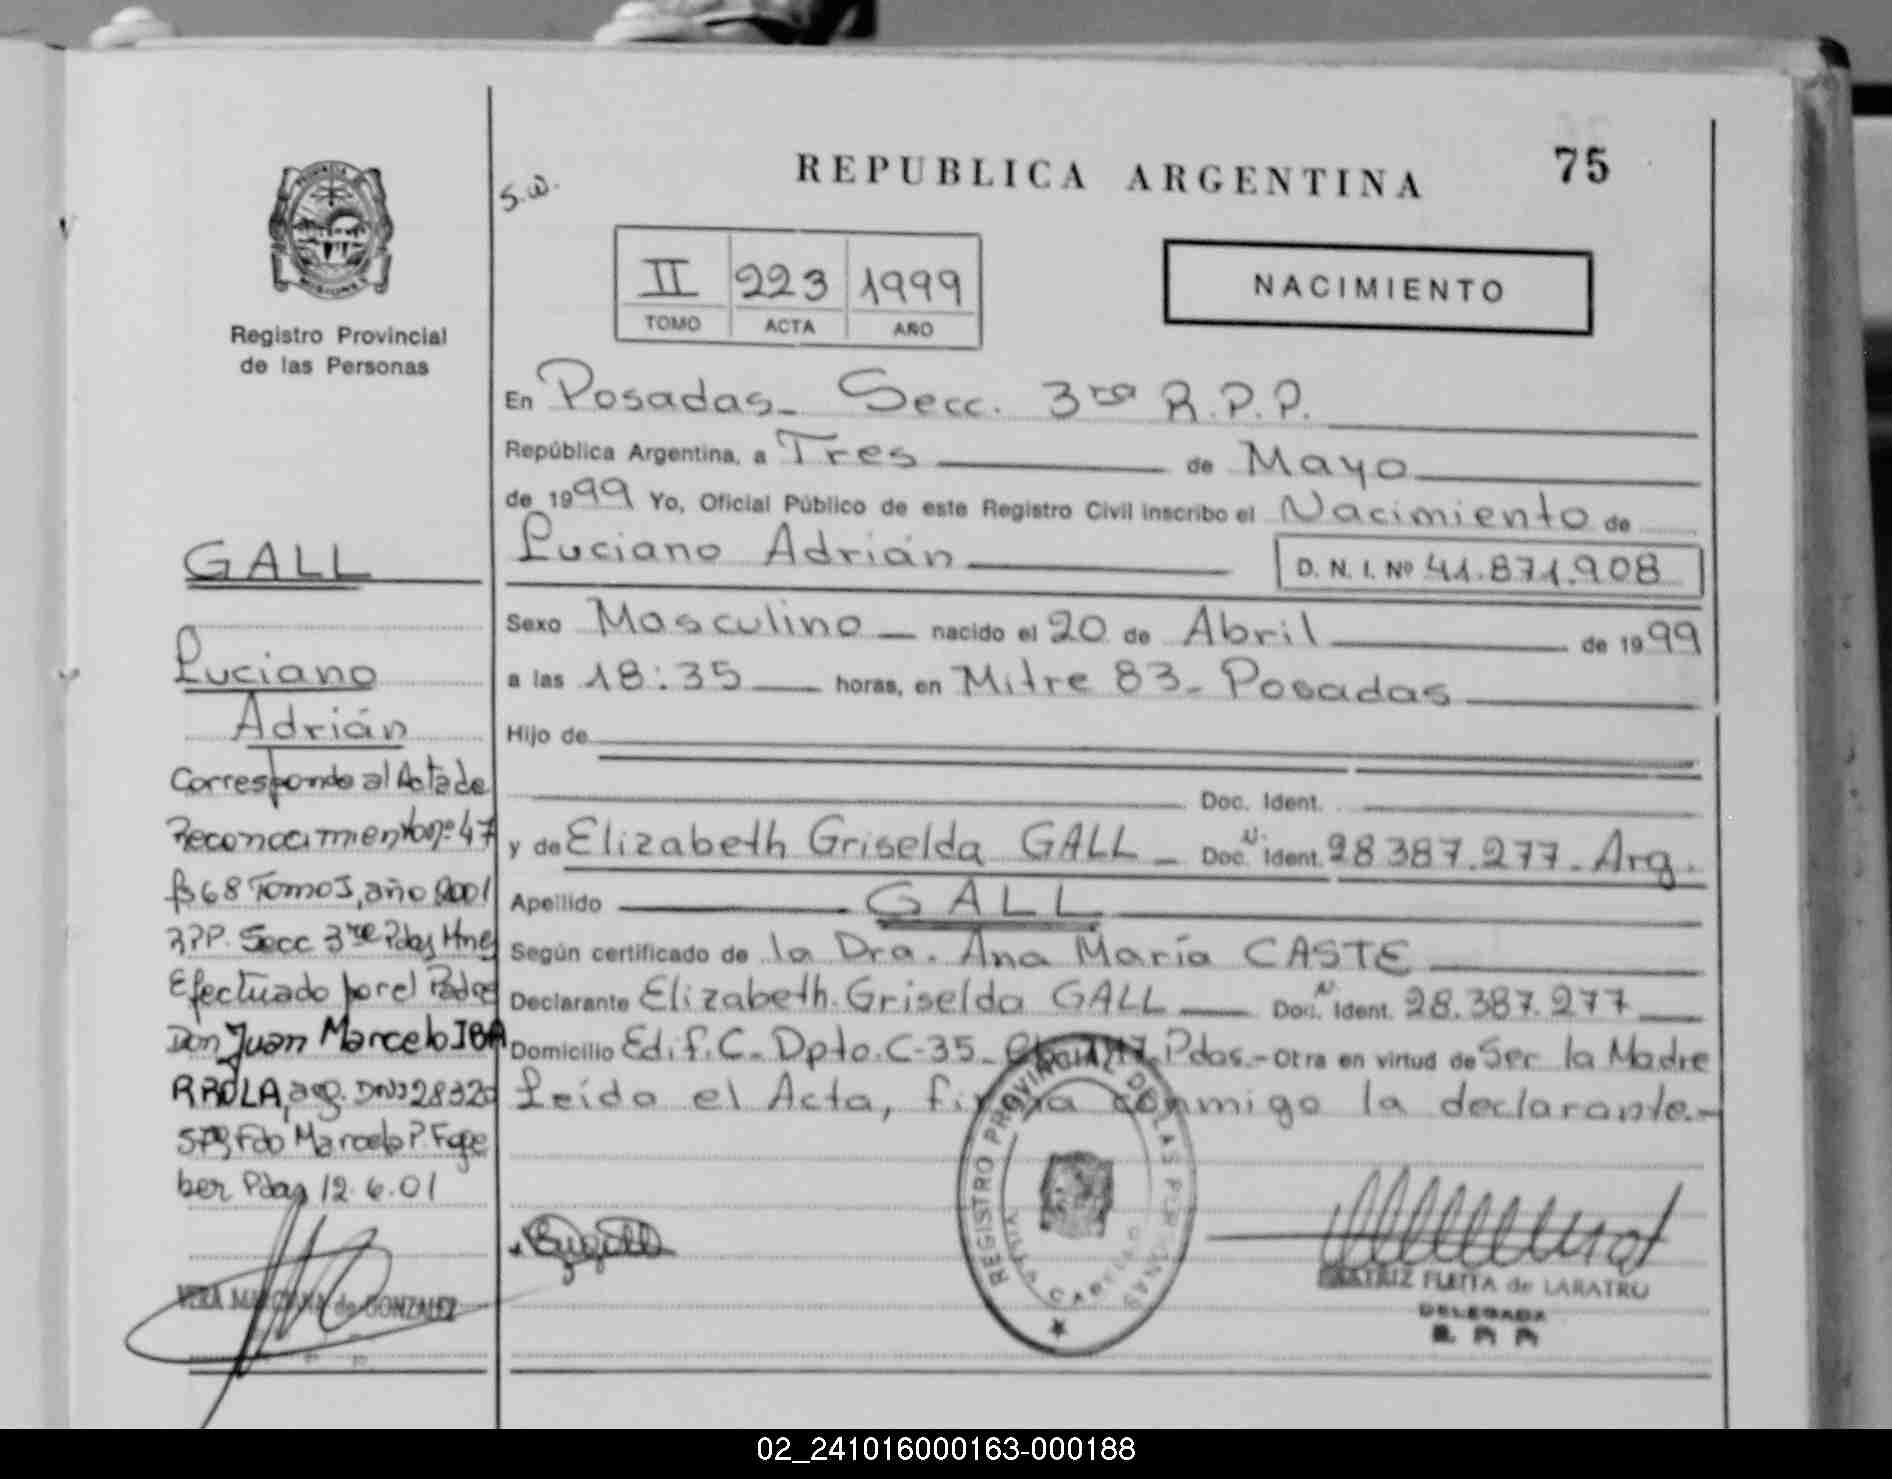 REPUBLICA ARGENTINA
75
S.W.
II 223 1999
TOMO ACTA AÑO
NACIMIENTO
Registro Provincial
de las Personas
GALL
Luciano
Adrián
Corresponde al Acta de
Reconocimiento nº 47
fº 68 Tomo I, año 2001
R.P.P. Secc 3ra Pdas Mnes
Efectuado por el Padre
Don Juan Marcelo IBA
RROLA, arg. DNI 28320
Fdo Marcelo P.
ber Pdas 12.6.01
VERA MARIANA de GONZALEZ
En Posadas - Secc. 3ra R.P.P.
República Argentina, a Tres de Mayo
de 1999 Yo, Oficial Público de este Registro Civil inscribo el Nacimiento de
Luciano Adrián D. N. I. Nº 41.871.908
Sexo Masculino - nacido el 20 de Abril de 1999
a las 18:35 horas, en Mitre 83 - Posadas
Hijo de
Doc. Ident.
y de Elizabeth Griselda GALL - Doc. N. Ident. 28.387.277 - Arg.
Apellido GALL
Según certificado de la Dra. Ana María CASTE
Declarante Elizabeth Griselda GALL Doc. N. Ident. 28.387.277
Domicilio Edif. C - Dpto. C-35 - Pdas. - Otra en virtud de Ser la Madre
Leída el Acta, firma conmigo la declarante.-
REGISTRO PROVINCIAL DE LAS PERSONAS
BEATRIZ FLEITA de LARATRO
DELEGADA
R P P
02_241016000163-000188